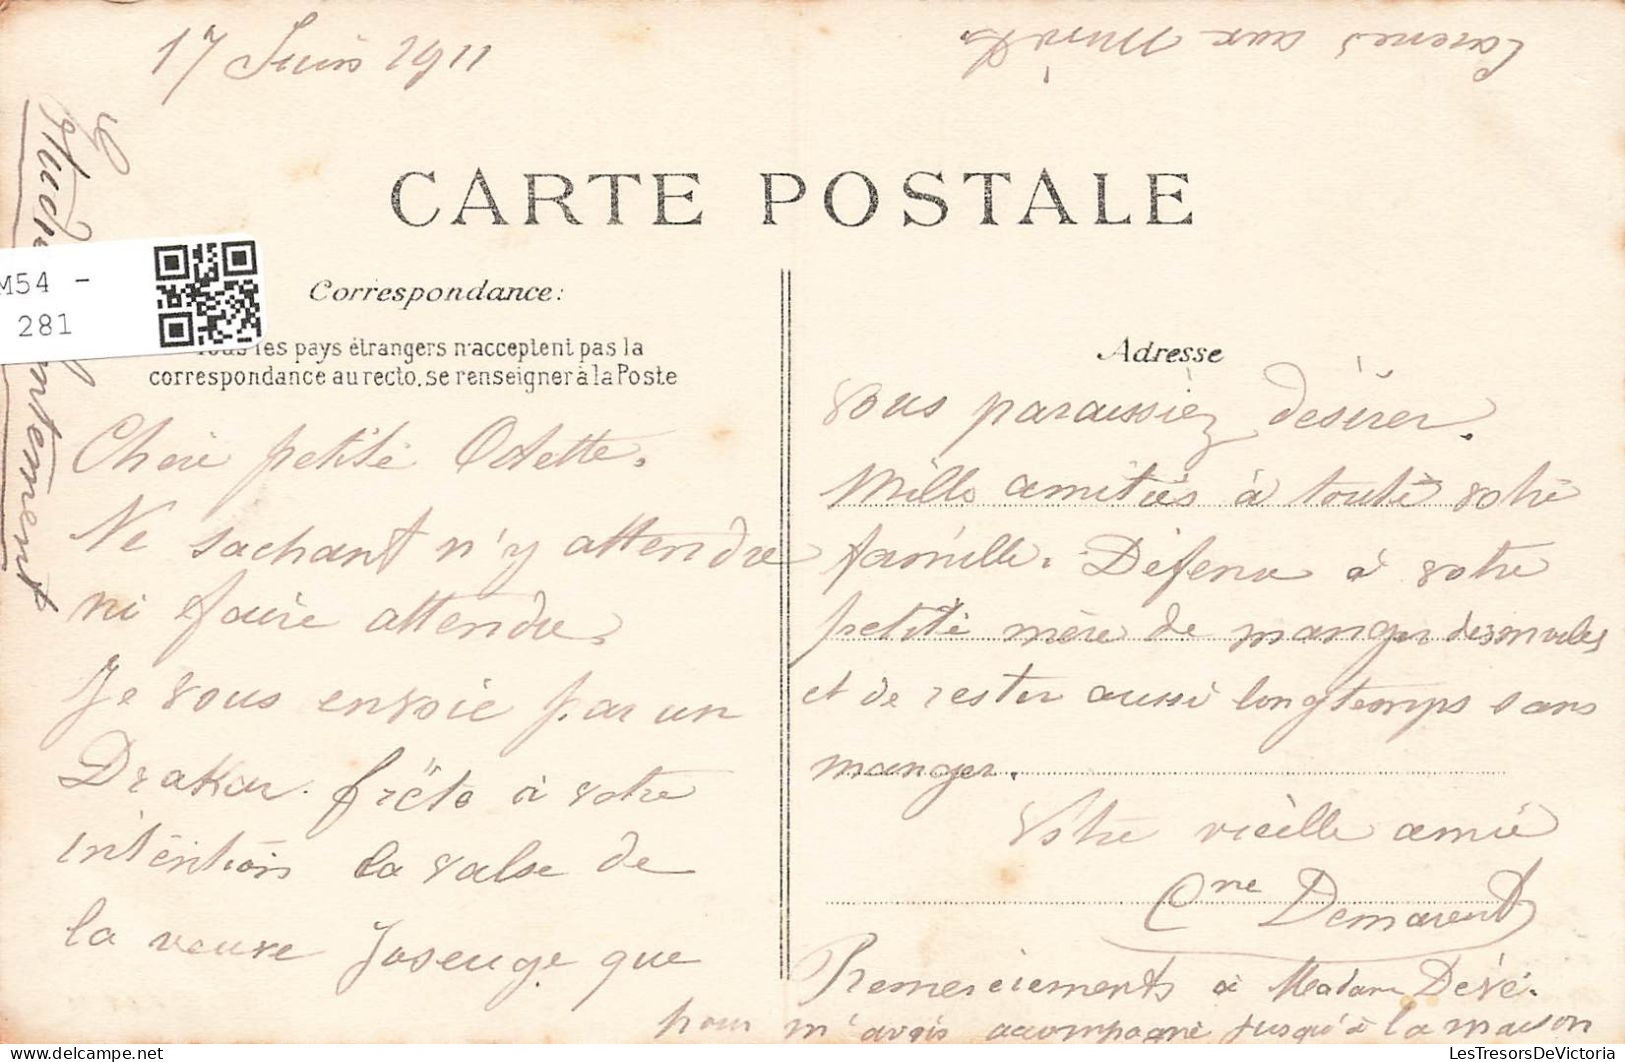 17 Juin 1911
CARTE POSTALE
M54 -
281
Correspondance:
Tous les pays étrangers n'acceptent pas la
correspondance au recto, se renseigner à la Poste
Chère petite Odette,
Ne sachant n'y attendre
ni faire attendre,
Je vous envoie par un
frété à votre
intention la valse de
la veuve Joseuge que
Adresse
vous paraissiez désirer.
Mille amitiés à toute votre
famille. Défense à votre
petite mère de manger des moules
et de rester aussi longtemps sans
manger.
Votre vieille amie
Cne Demarent
Remerciements à Madame Dévé.
pour m'avoir accompagné jusqu'à la maison
LesTresorsDeVictoria.com